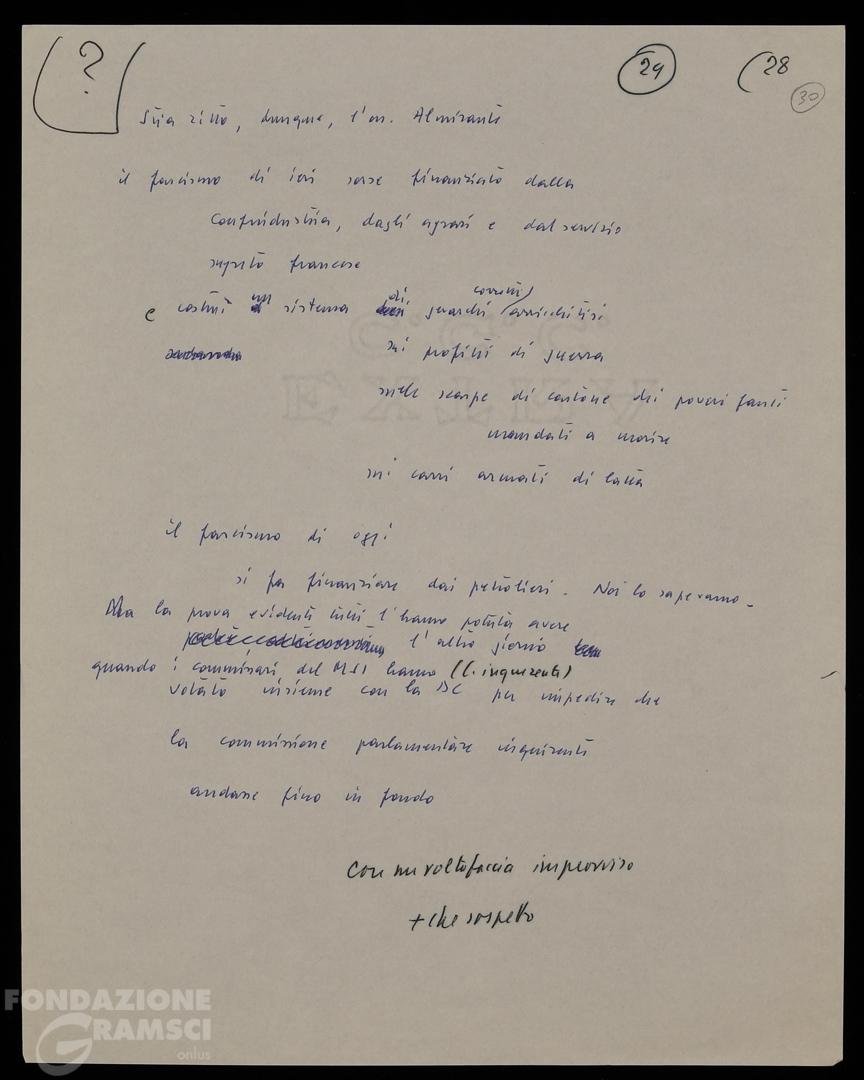 ?
29
28
30
Stia zitto, dunque, l'on. Almirante
il fascismo di ieri sorse finanziato dalla
Confindustria, dagli agrari e dal servizio
segreto francese
e costruì un sistema di gerarchi corrotti arricchitisi
sui profitti di guerra
sulle scarpe di cartone dei poveri fanti
mandati a morire
sui carri armati di latta
il fascismo di oggi
si fa finanziare dai petrolieri. Noi lo sapevamo.
Ma la prova evidente tutti l'hanno potuta avere
l'altro giorno
quando i commissari del MSI hanno (C. inquirente)
votato insieme con la DC per impedire che
la commissione parlamentare inquirente
andasse fino in fondo
Con un voltafaccia improvviso
+ che sospetto
FONDAZIONE
GRAMSCI
onlus